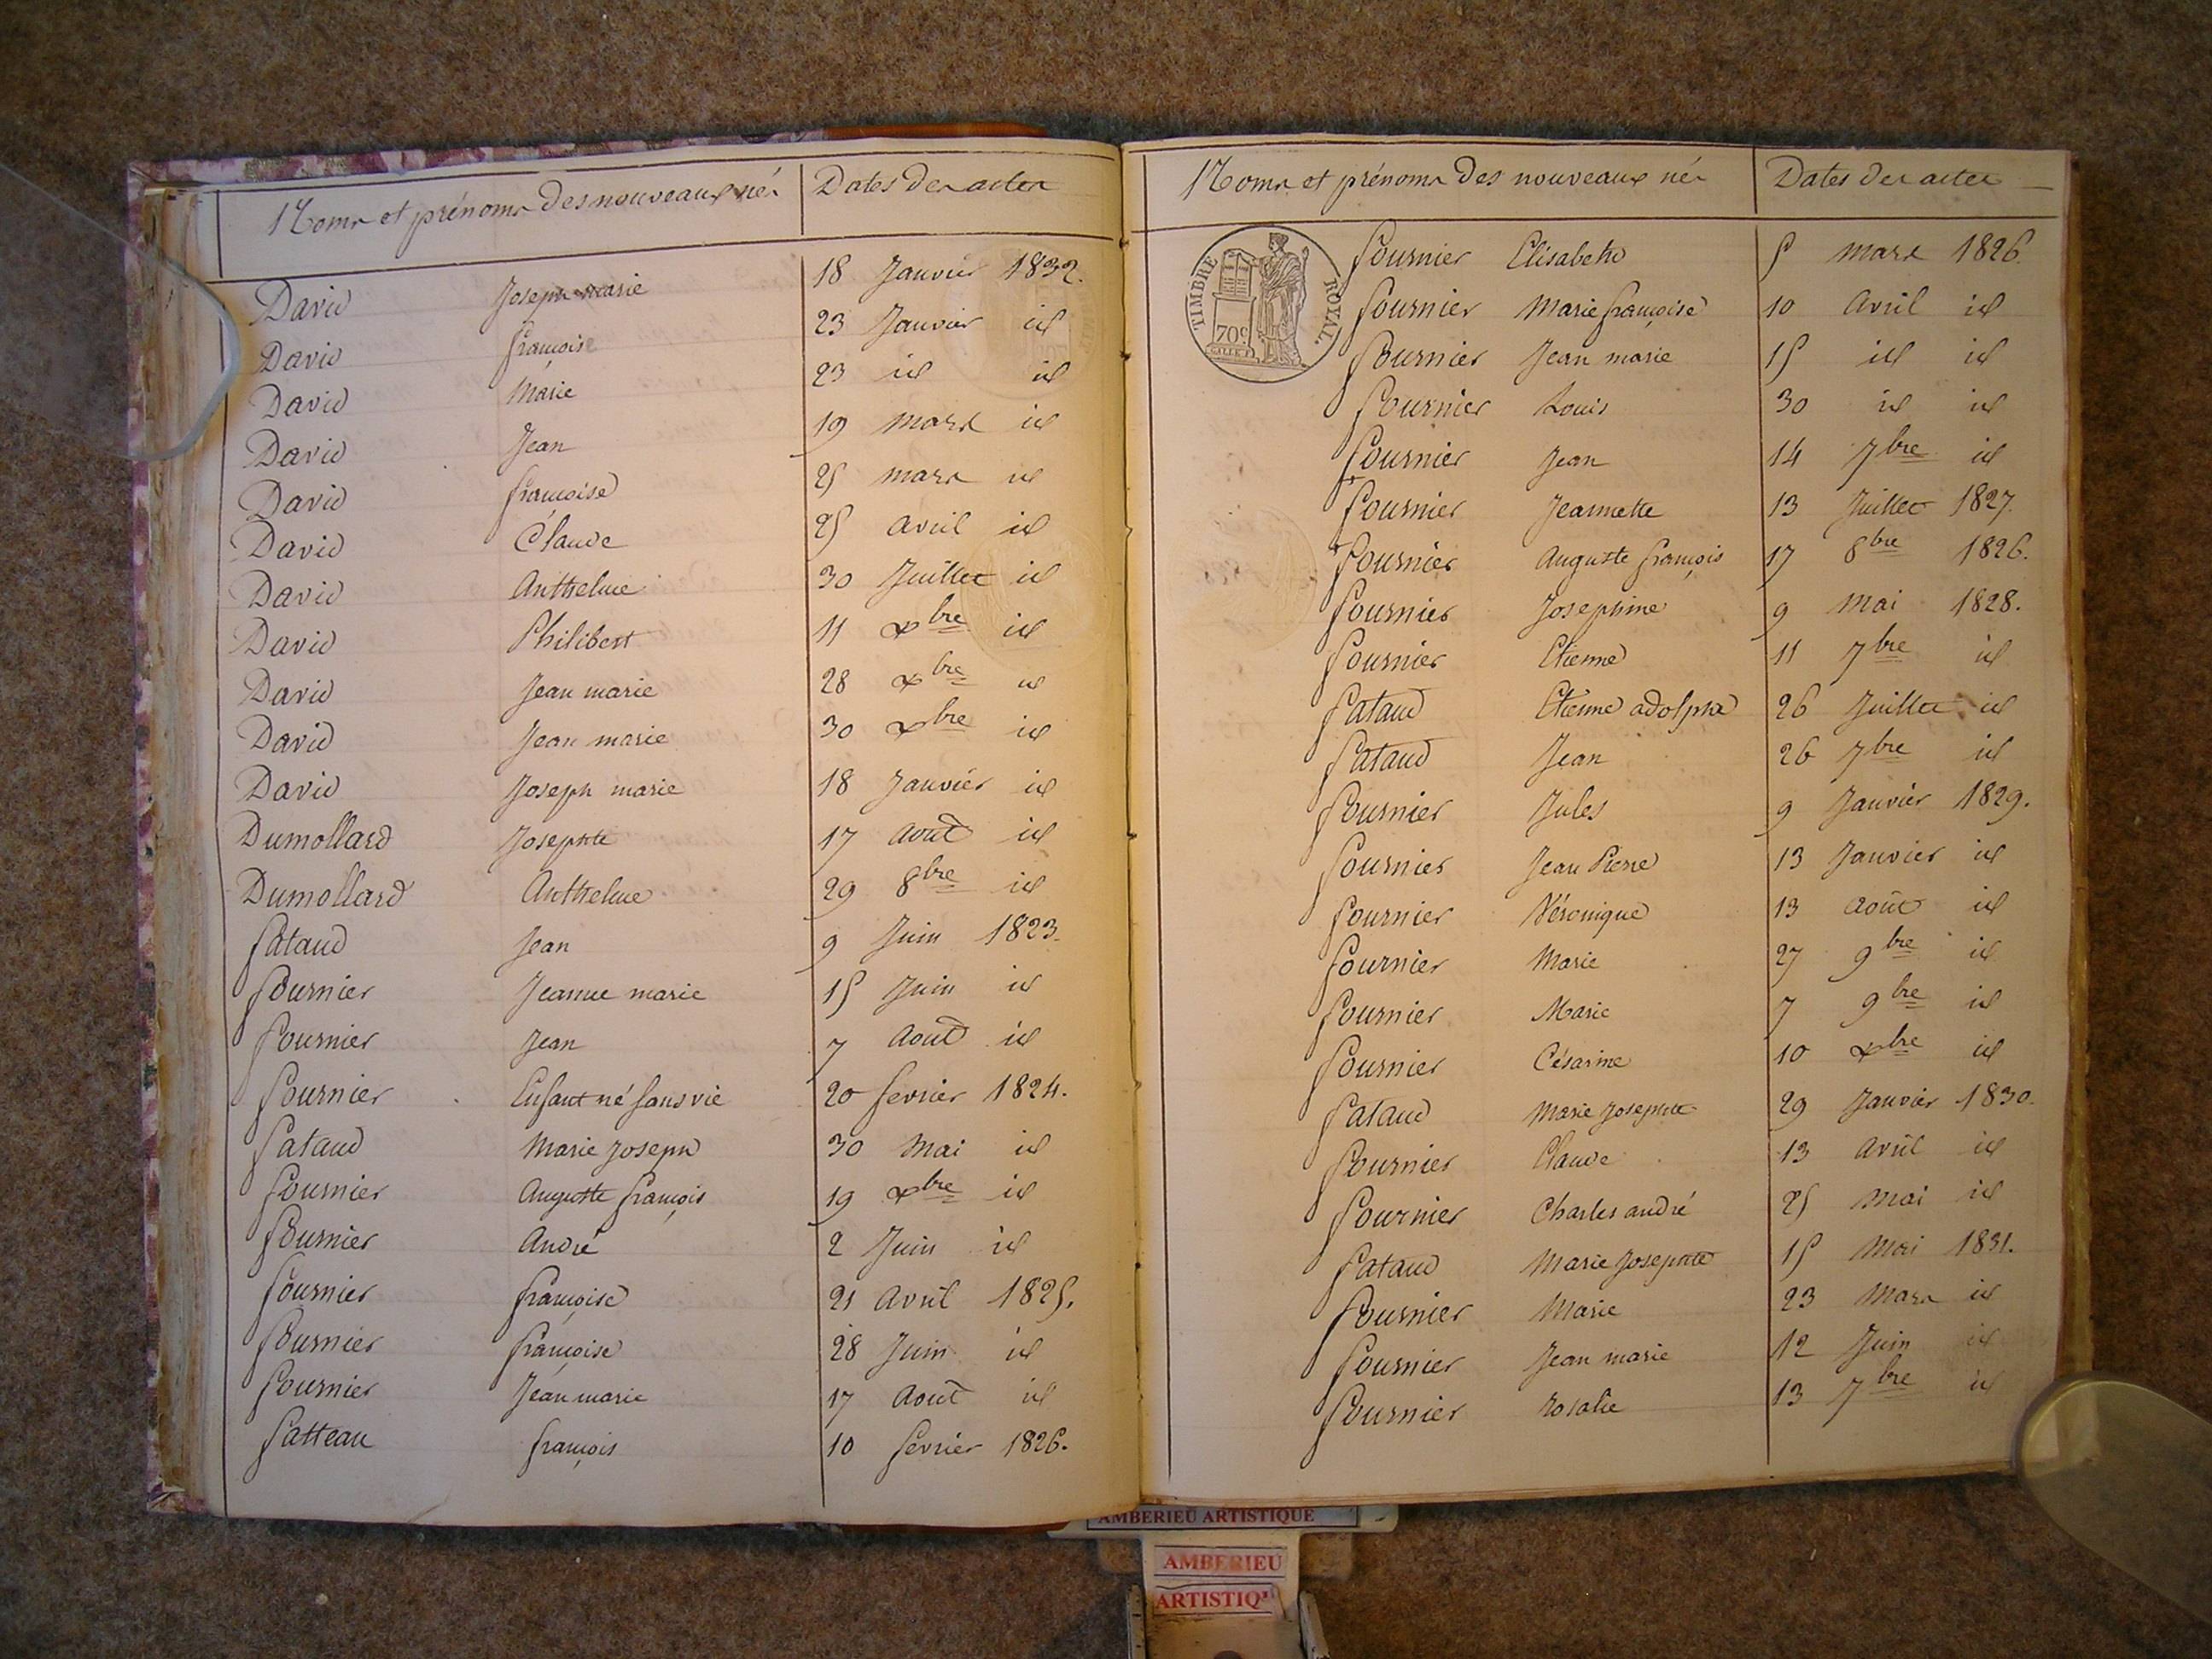 Noms et prénoms des nouveaux nés Dates des actes
David Joseph marie 18 Janvier 1832.
David françois 23 Janvier id
David Marie 23 id id
David Jean 19 mars id
David françoise 25 mars id
David Claude 25 avril id
David Anthelme 30 Juillet id
David Philibert 11 xbre id
David Jean marie 28 xbre id
David Jean marie 30 xbre id
David Joseph marie 18 Janvier id
Dumollard Josephte 17 aout id
Dumollard Anthelme 29 8bre id
fataud Jean 9 Juin 1823.
fournier Jeanne marie 15 Juin id
fournier Jean 7 Aout id
fournier Enfant né sans vie 20 fevrier 1824.
fataud Marie Joseph 30 Mai id
fournier Auguste françois 19 xbre id
fournier André 2 Juin id
fournier françoise 21 Avril 1825.
fournier françoise 28 Juin id
fournier Jean marie 17 Aout id
fatteau françois 10 fevrier 1826.
Noms et prénoms des nouveaux nés Dates des actes
TIMBRE ROYAL.
70c.
fournier Elisabeth 5 mars 1826.
fournier Marie françoise 10 Avril id
fournier Jean marie 15 id id
fournier Louis 30 id id
fournier Jean 14 7bre id
fournier Jeannette 13 Juillet 1827.
fournier Auguste françois 17 8bre 1826.
fournier Josephine 9 Mai 1828.
fournier Etienne 11 7bre id
fataud Etienne adolphe 26 Juillet id
fataud Jean 26 7bre id
fournier Jules 9 Janvier 1829.
fournier Jean Pierre 13 Janvier id
fournier Véronique 13 Août id
fournier Marie 27 9bre id
fournier Marie 7 9bre id
fournier Césarine 10 xbre id
fataud Marie Josephte 29 Janvier 1830.
fournier Claude 13 Avril id
fournier Charles andré 25 Mai id
fataud Marie Josephte 15 Mai 1831.
fournier Marie 23 Mars id
fournier Jean marie 12 Juin id
fournier rosalie 13 7bre id
AMBERIEU ARTISTIQUE
AMBERIEU
ARTISTIQ